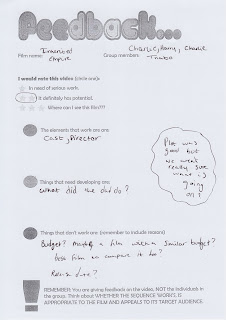 Feedback...
Film name: Inverted Empire
Group members: Charlie, Harry, Charlie
I would rate this video (circle one):
In need of serious work.
It definitely has potential.
Where can I see the film???
The elements that work are:
Cast, Director
Plot was
good but
we weren't
really sure
what is
going
on!
Things that need developing are:
What did the dad do?
Things that don't work are: (remember to include reasons)
Budget? a film with a similar budget?
best film to compare it to?
Release date?
REMEMBER: You are giving feedback on the video, NOT the individuals in
the group. Think about WHETHER THE SEQUENCE WORKS, IS
APPROPRIATE TO THE FILM AND APPEALS TO ITS TARGET AUDIENCE.